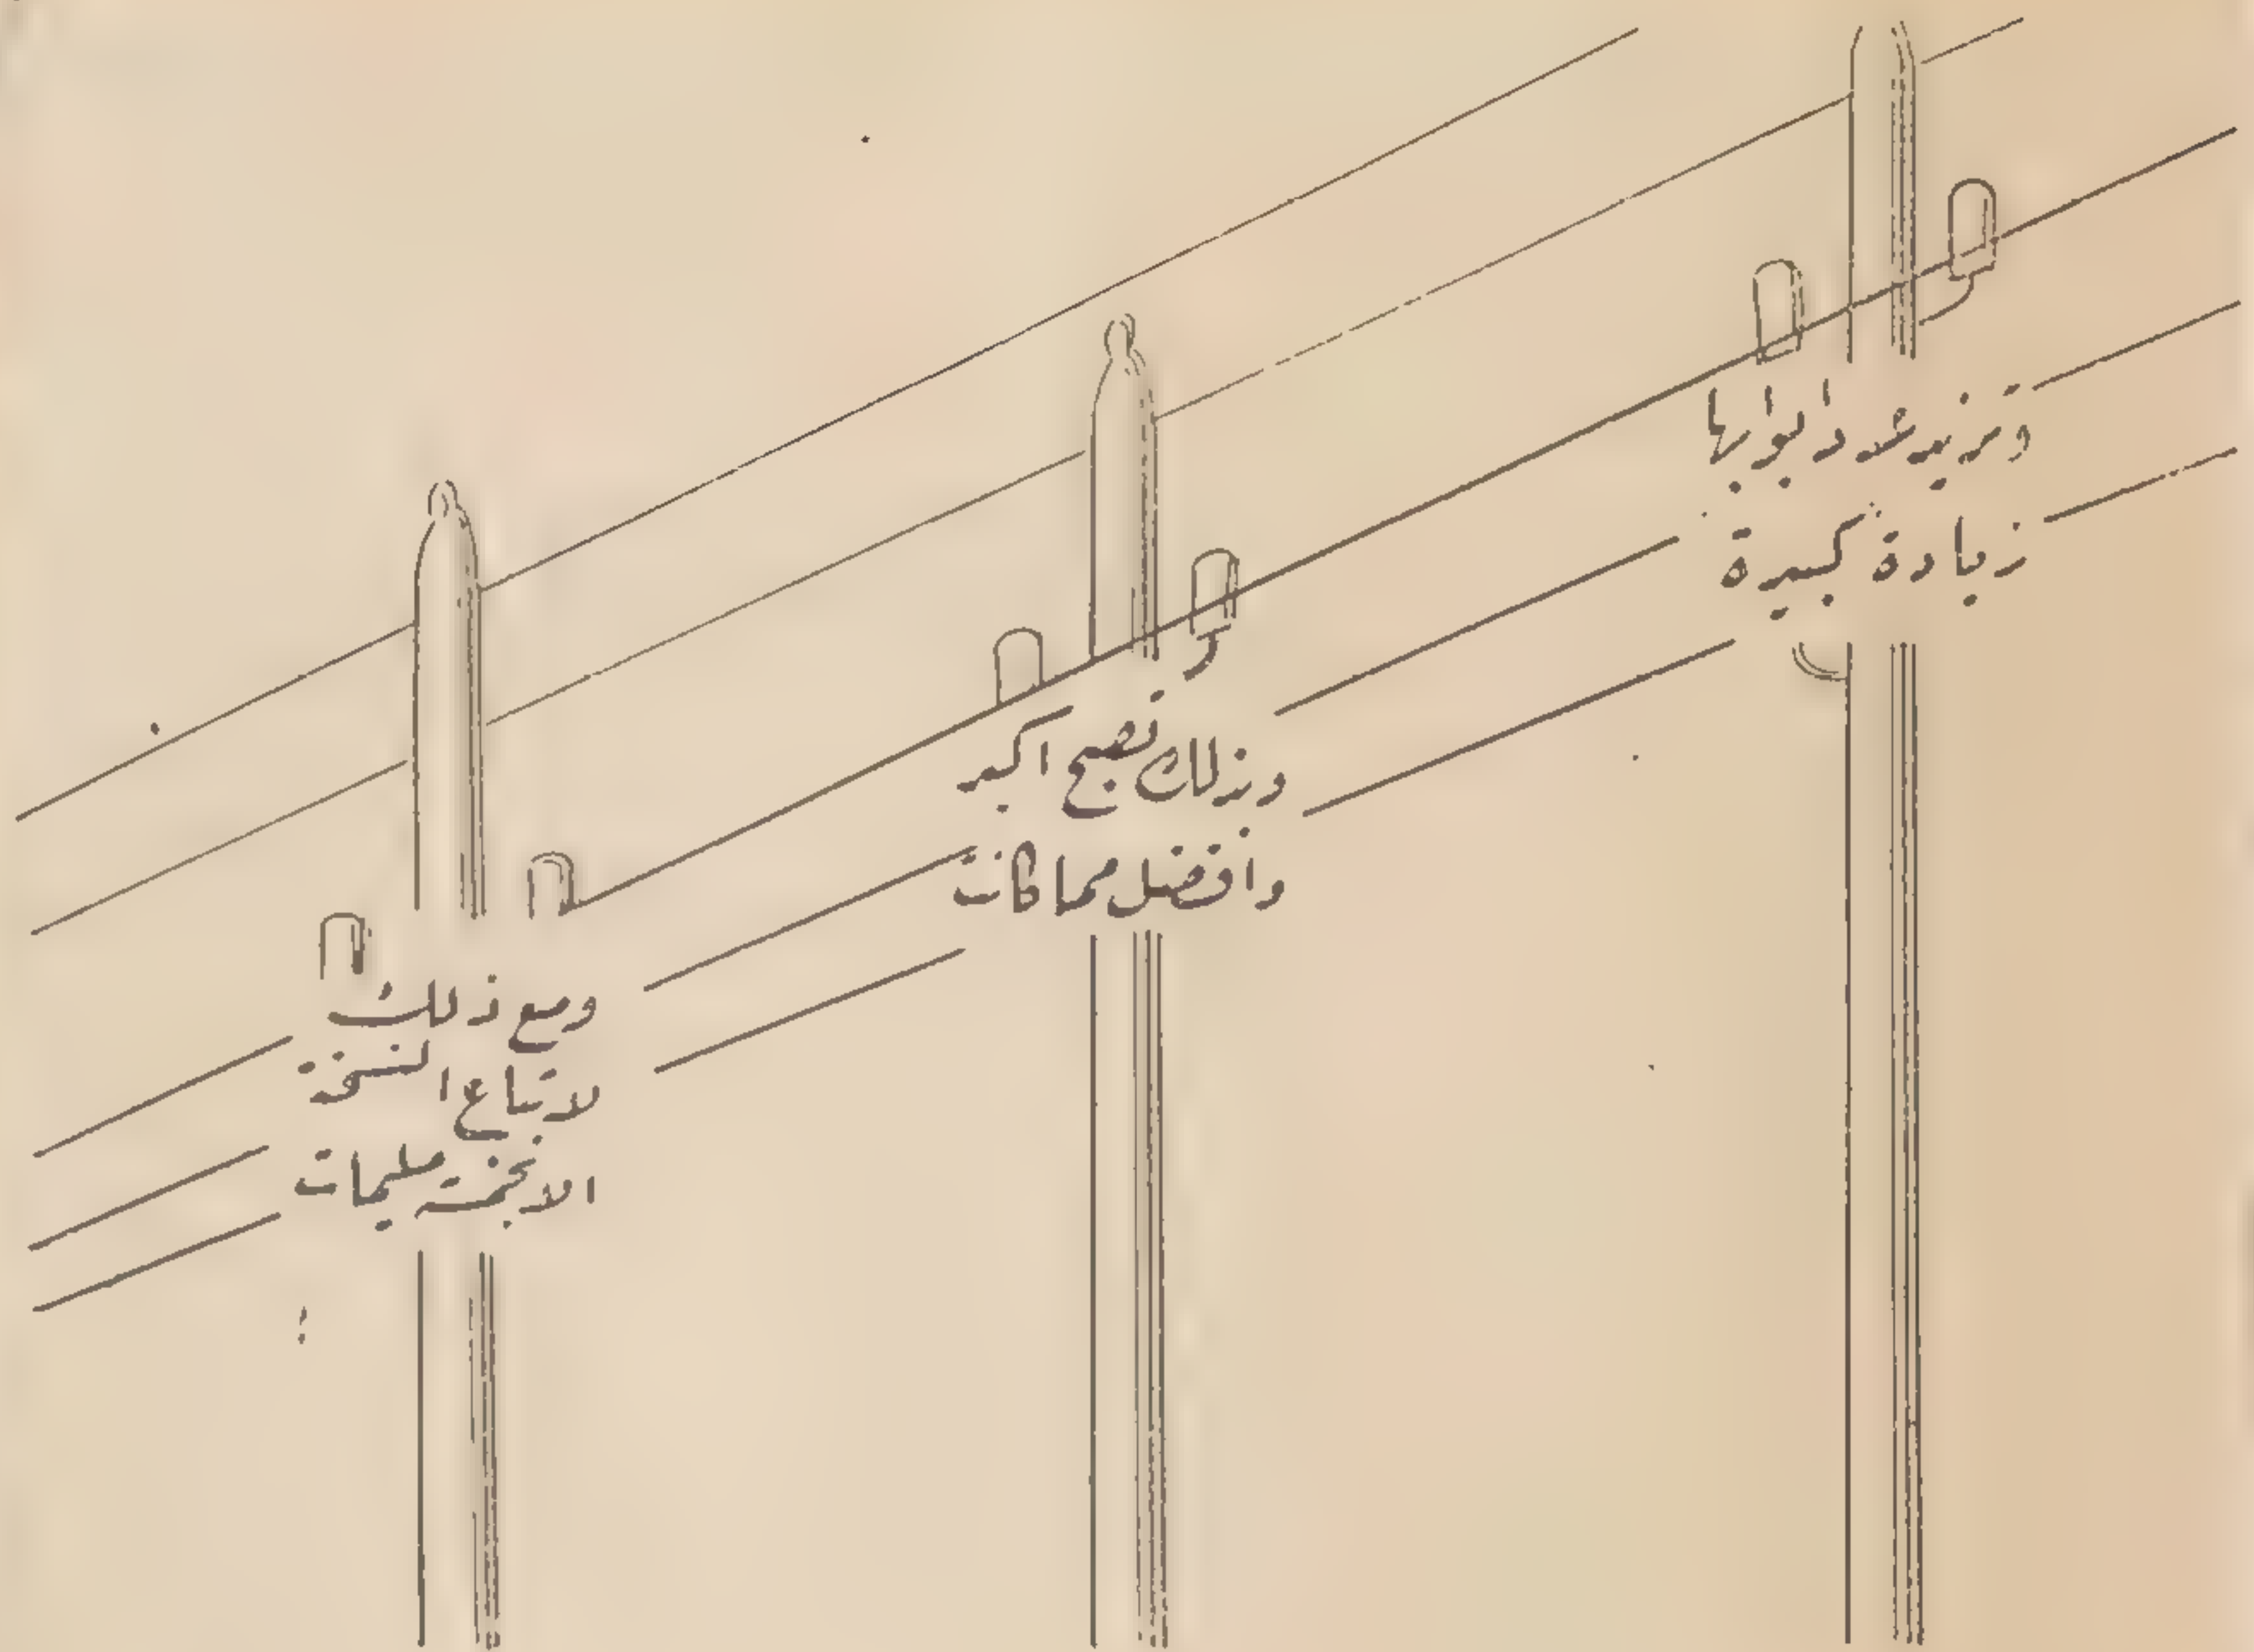 وتزيد عدد ابوابها
زيادة كبيرة
وبذلك تصبح اكبر
وافضل مما كانت
ومع ذلك
لاتباع النسخة
الابخمسة مليمات
!